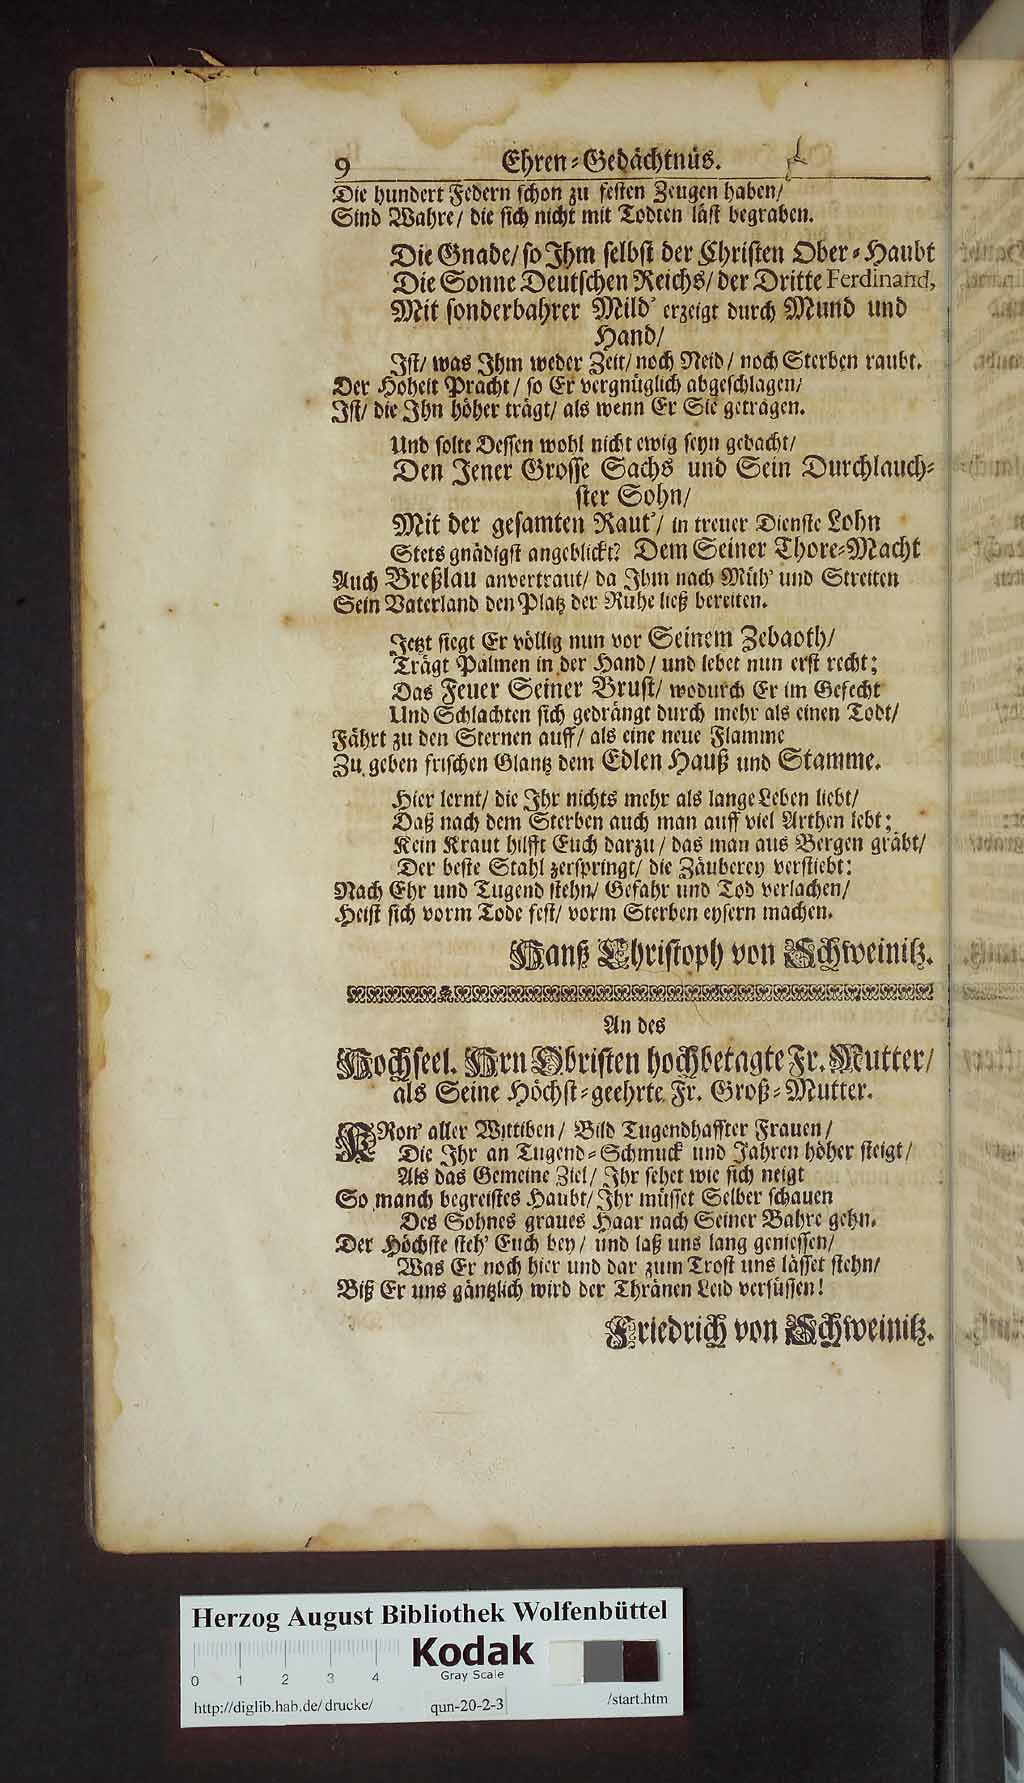 9 Ehren-Gedächtnüs.
Die hundert Federn schon zu festen Zeugen haben/
Sind Wahre/ die sich nicht mit Todten läst begraben.
Die Gnade/ so Ihm selbst der Christen Ober-Haubt
Die Sonne Deutschen Reichs/ der Dritte Ferdinand,
Mit sonderbahrer Mild' erzeigt durch Mund und
Hand/
Ist/ was Ihm weder Zeit/ noch Neid/ noch Sterben raubt.
Der Hoheit Pracht/ so Er vergnüglich abgeschlagen/
Ist/ die Ihn höher trägt/ als wenn Er Sie getragen.
Und solte Dessen wohl nicht ewig seyn gedacht/
Den Jener Grosse Sachs und Sein Durchlauch-
ster Sohn/
Mit der gesamten Raut'/ in treuer Dienste Lohn
Stets gnädigst angeblickt? Dem Seiner Thore-Macht
Auch Breßlau anvertraut/ da Ihm nach Müh' und Streiten
Sein Vaterland den Platz der Ruhe ließ bereiten.
Jetzt siegt Er völlig nun vor Seinem Zebaoth/
Trägt Palmen in der Hand/ und lebet nun erst recht;
Das Feuer Seiner Brust/ wodurch Er im Gefecht
Und Schlachten sich gedrängt durch mehr als einen Todt/
Fährt zu den Sternen auff/ als eine neue Flamme
Zu geben frischen Glantz dem Edlen Hauß und Stamme.
Hier lernt/ die Ihr nichts mehr als lange Leben liebt/
Daß nach dem Sterben auch man auff viel Arthen lebt;
Kein Kraut hilfft Euch darzu/ das man aus Bergen gräbt/
Der beste Stahl zerspringt/ die Zäuberey verstiebt:
Nach Ehr und Tugend stehn/ Gefahr und Tod verlachen/
Heist sich vorm Tode fest/ vorm Sterben eysern machen.
Hanß Christoph von Schweinitz.
An des
Hochseel. Hrn Obristen hochbetagte Fr. Mutter/
als Seine Höchst-geehrte Fr. Groß-Mutter.
KRon' aller Wittiben/ Bild Tugendhaffter Frauen/
Die Ihr an Tugend-Schmuck und Jahren höher steigt/
Als das Gemeine Ziel/ Ihr sehet wie sich neigt
So manch begreistes Haubt/ Ihr müsset Selber schauen
Des Sohnes graues Haar nach Seiner Bahre gehn.
Der Höchste steh' Euch bey/ und laß uns lang geniessen/
Was Er noch hier und dar zum Trost uns lässet stehn/
Biß Er uns gäntzlich wird der Thränen Leid versüssen!
Friedrich von Schweinitz.
Herzog August Bibliothek Wolfenbüttel
Kodak
Gray Scale
0 1 2 3 4
http://diglib.hab.de/drucke/ qun-20-2-3 /start.htm